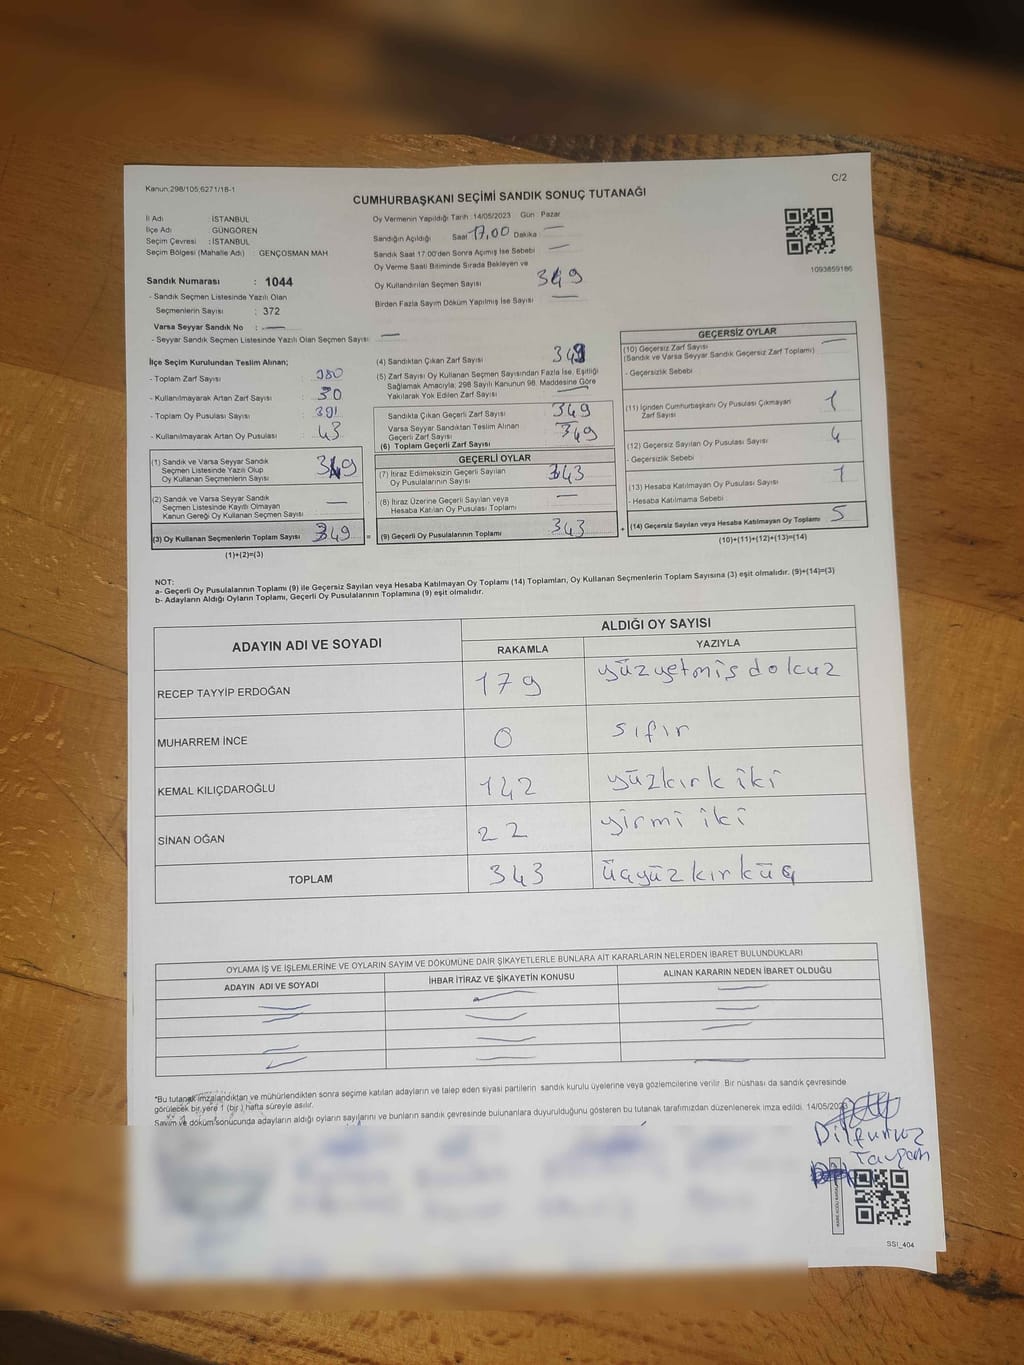 Kanun:298/105;6271/18-1
C/2
CUMHURBAŞKANI SEÇİMİ SANDIK SONUÇ TUTANAĞI
İl Adı : İSTANBUL
İlçe Adı : GÜNGÖREN
Seçim Çevresi : İSTANBUL
Seçim Bölgesi (Mahalle Adı) : GENÇOSMAN MAH
Sandık Numarası : 1044
- Sandık Seçmen Listesinde Yazılı Olan
Seçmenlerin Sayısı : 372
Varsa Seyyar Sandık No : —
- Seyyar Sandık Seçmen Listesinde Yazılı Olan Seçmen Sayısı: —
Oy Vermenin Yapıldığı Tarih : 14/05/2023 Gün : Pazar
Sandığın Açıldığı Saat 17,00 Dakika —
Sandık Saat 17.00'den Sonra Açımış İse Sebebi —
Oy Verme Saati Bitiminde Sırada Bekleyen ve
Oy Kullandırılan Seçmen Sayısı 349
Birden Fazla Sayım Döküm Yapılmış İse Sayısı —
1093859186
İlçe Seçim Kurulundan Teslim Alınan;
- Toplam Zarf Sayısı : 380
- Kullanılmayarak Artan Zarf Sayısı : 30
- Toplam Oy Pusulası Sayısı : 391
- Kullanılmayarak Artan Oy Pusulası : 43
(1) Sandık ve Varsa Seyyar Sandık
Seçmen Listesinde Yazılı Olup
Oy Kullanan Seçmenlerin Sayısı 349
(2) Sandık ve Varsa Seyyar Sandık
Seçmen Listesinde Kayıtlı Olmayan
Kanun Gereği Oy Kullanan Seçmen Sayısı —
(3) Oy Kullanan Seçmenlerin Toplam Sayısı 349 =
(1)+(2)=(3)
(4) Sandıktan Çıkan Zarf Sayısı 349
(5) Zarf Sayısı Oy Kullanan Seçmen Sayısından Fazla İse, Eşitliği
Sağlamak Amacıyla; 298 Sayılı Kanunun 98. Maddesine Göre
Yakılarak Yok Edilen Zarf Sayısı —
Sandıkla Çıkan Geçerli Zarf Sayısı 349
Varsa Seyyar Sandıktan Teslim Alınan
Geçerli Zarf Sayısı
(6) Toplam Geçerli Zarf Sayısı 349
GEÇERLİ OYLAR
(7) İtiraz Edilmeksizin Geçerli Sayılan
Oy Pusulalarının Sayısı 343
(8) İtiraz Üzerine Geçerli Sayılan veya
Hesaba Katılan Oy Pusulası Toplamı —
(9) Geçerli Oy Pusulalarının Toplamı 343 +
GEÇERSİZ OYLAR
(10) Geçersiz Zarf Sayısı
(Sandık ve Varsa Seyyar Sandık Geçersiz Zarf Toplamı) —
- Geçersizlik Sebebi
(11) İçinden Cumhurbaşkanı Oy Pusulası Çıkmayan
Zarf Sayısı 1
(12) Geçersiz Sayılan Oy Pusulası Sayısı 4
- Geçersizlik Sebebi
(13) Hesaba Katılmayan Oy Pusulası Sayısı 1
- Hesaba Katılmama Sebebi
(14) Geçersiz Sayılan veya Hesaba Katılmayan Oy Toplamı 5
(10)+(11)+(12)+(13)=(14)
NOT:
a- Geçerli Oy Pusulalarının Toplamı (9) ile Geçersiz Sayılan veya Hesaba Katılmayan Oy Toplamı (14) Toplamları, Oy Kullanan Seçmenlerin Toplam Sayısına (3) eşit olmalıdır. (9)+(14)=(3)
b- Adayların Aldığı Oyların Toplamı, Geçerli Oy Pusulalarının Toplamına (9) eşit olmalıdır.
ADAYIN ADI VE SOYADI ALDIĞI OY SAYISI
RAKAMLA YAZIYLA
RECEP TAYYİP ERDOĞAN 179 yüzyetmiş dokuz
MUHARREM İNCE 0 sıfır
KEMAL KILIÇDAROĞLU 142 yüzkırk iki
SİNAN OĞAN 22 yirmi iki
TOPLAM 343 üçyüz kırküç
OYLAMA İŞ VE İŞLEMLERİNE VE OYLARIN SAYIM VE DÖKÜMÜNE DAİR ŞİKAYETLERLE BUNLARA AİT KARARLARIN NELERDEN İBARET BULUNDUKLARI
ADAYIN ADI VE SOYADI İHBAR İTİRAZ VE ŞİKAYETİN KONUSU ALINAN KARARIN NEDEN İBARET OLDUĞU
*Bu tutanak imzalandıktan ve mühürlendikten sonra seçime katılan adayların ve talep eden siyasi partilerin sandık kurulu üyelerine veya gözlemcilerine verilir. Bir nüshası da sandık çevresinde
görülecek bir yere 1 (bir ) hafta süreyle asılır.
Sayım ve döküm sonucunda adayların aldığı oyların sayılarını ve bunların sandık çevresinde bulunanlara duyurulduğunu gösteren bu tutanak tarafımızdan düzenlenerek imza edildi. 14/05/2023
SSI_404